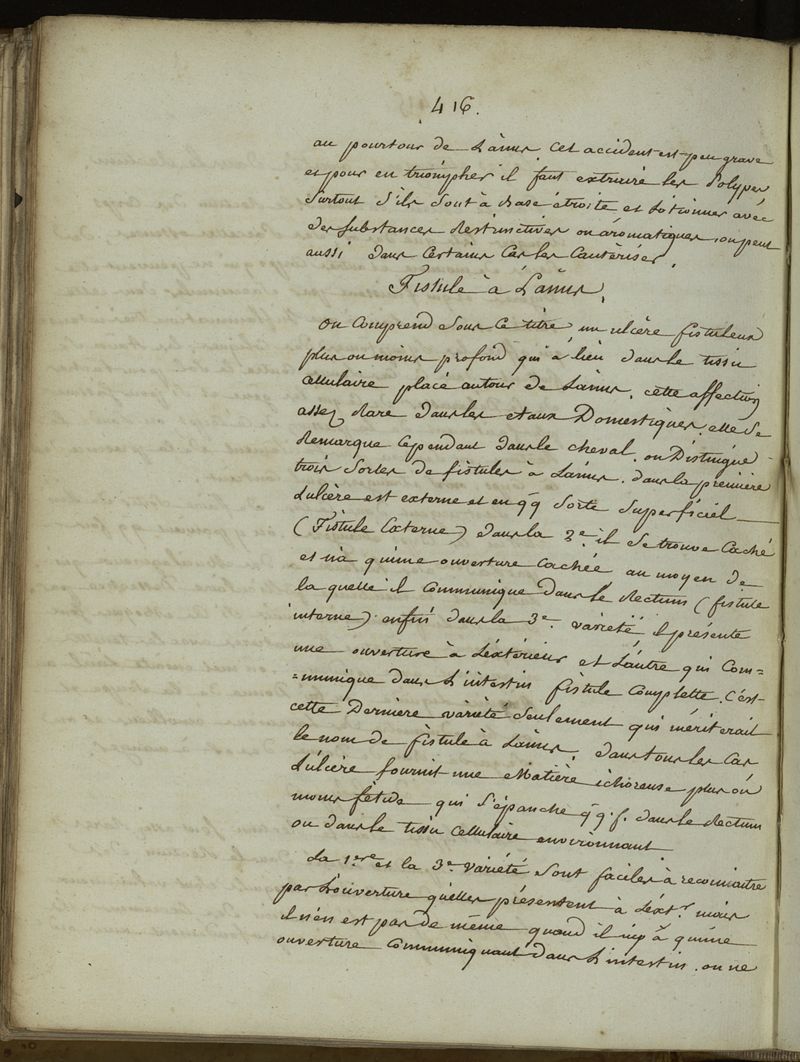 416.
au pourtour de L'anus. Cet accident est peu grave
et pour en triompher il faut extruire les Polypes
surtout s'ils sont à Base étroite et Lotionner avec
des substances Restrinctives ou aromatiques, on peut
aussi dans Certains Cas les Cautériser.
Fistule à L'anus.
on Comprend sous Ce titre un ulcère fistuleux
plus ou moins profond qui à lieu dans le tissu
cellulaire placé autour de L'anus. cette affection
assez Rare dans les etaux Domestiques. elle se
Remarque Cependant dans le cheval. on Distingue
trois Sortes de fistules à L'anus. dans la première
L'ulcère est externe et en qq Sorte Superficiel
(Fistule Externe) dans la 2e il se trouve Caché
et n'a qu'une ouverture Cachée au moyen de
la quelle il Communique dans le Rectum (fistule
interne) enfin dans la 3e variété il présente
une ouverture à L'extérieur et L'autre qui Com=
=munique dans L'intestin fistule Complette. C'est
cette Derniere variété Seulement qui mériterait
le nom de fistule à L'anus. dans tous les Cas
L'ulcère fournit une Matière ichoreuse plus ou
moins fétide qui s'épanche qq.f. dans le Rectum
ou dans le tissu Cellulaire environnant
La 1ere et la 3e variété sont faciles à reconnaitre
par L'ouverture qu'elles présentent à L'extr mais
il n'en est pas de même quand il n'y a qu'une
ouverture Communiquant dans L'intestin. on ne